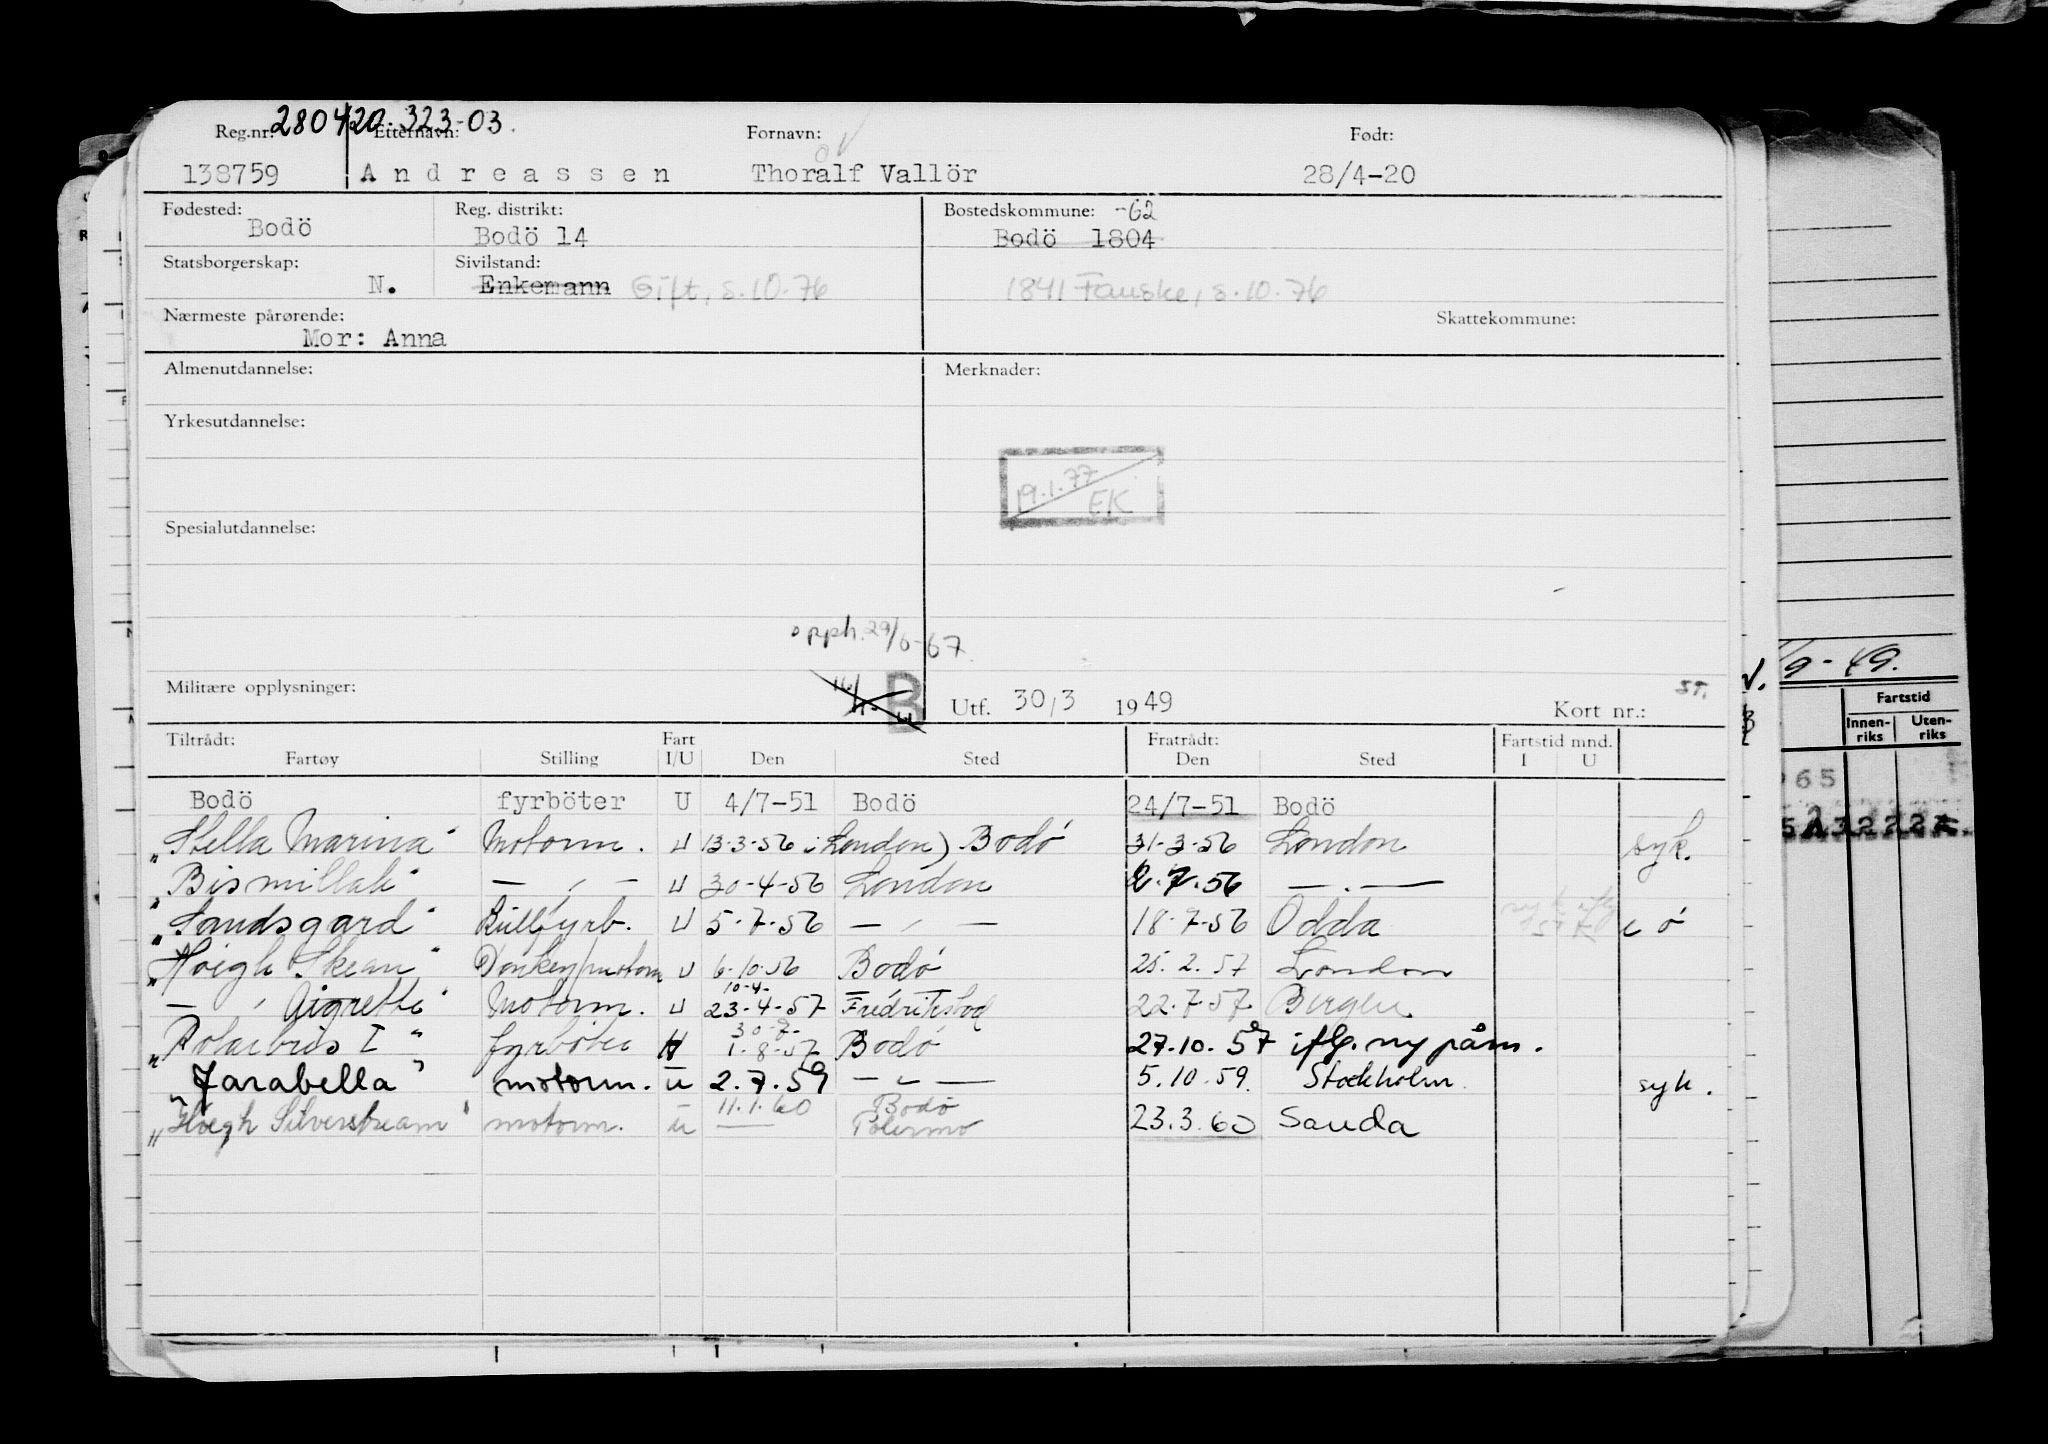 280420 323-03.
Reg.nr. Etternavn: Fornavn: Født:
138759 Andreassen Thoralf Vallör 28/4-20
Fødested: Reg. distrikt: Bostedskommune: -62
Bodö Bodö 14 Bodö 1804
Statsborgerskap: Sivilstand:
N. Enkemann Gift, s.10.76 1841 Fauske, s.10.76
Nærmeste pårørende: Skattekommune:
Mor: Anna
Almenutdannelse: Merknader:
Yrkesutdannelse:
19.1.77 EK
Spesialutdannelse:
opph. 29/6-67
Militære opplysninger: B Utf. 30/3 1949 Kort nr.:
Tiltrådt: Fart Fratrådt: Fartstid mnd.
Fartøy Stilling I/U Den Sted Den Sted I U
Bodö fyrböter U 4/7-51 Bodö 24/7-51 Bodö
"Stella Marina" Motorm. U 13-3-56 i London) Bodö 31-3-56 London syk.
"Bismillah" — , — U 30-4-56 London 2.7.56 — . —
"Sandsgard" Küllfyrb. U 5-7-56 — , — 18-7-56 Odda
"Höegh Skean" Donkey/motorm U 6-10-56 Bodö 25.2.57 London
10-4-
— , Aigrette" Motorm. U 23-4-57 Fredrikstad 22.7.57 Bergen
30-7-
"Polarbris I" fyrböter 1.8.57 Bodö 27.10.57 iflg. ny påm.
"Jarabella" motorm. u 2.7.59 — " — 5.10.59. Stockholm syk.
11.1.60 Bodö
"Höegh Silverstream" motorm. u — Palermo 23.3.60 Sauda
9-49.
Fartstid
Innen-riks Uten-riks